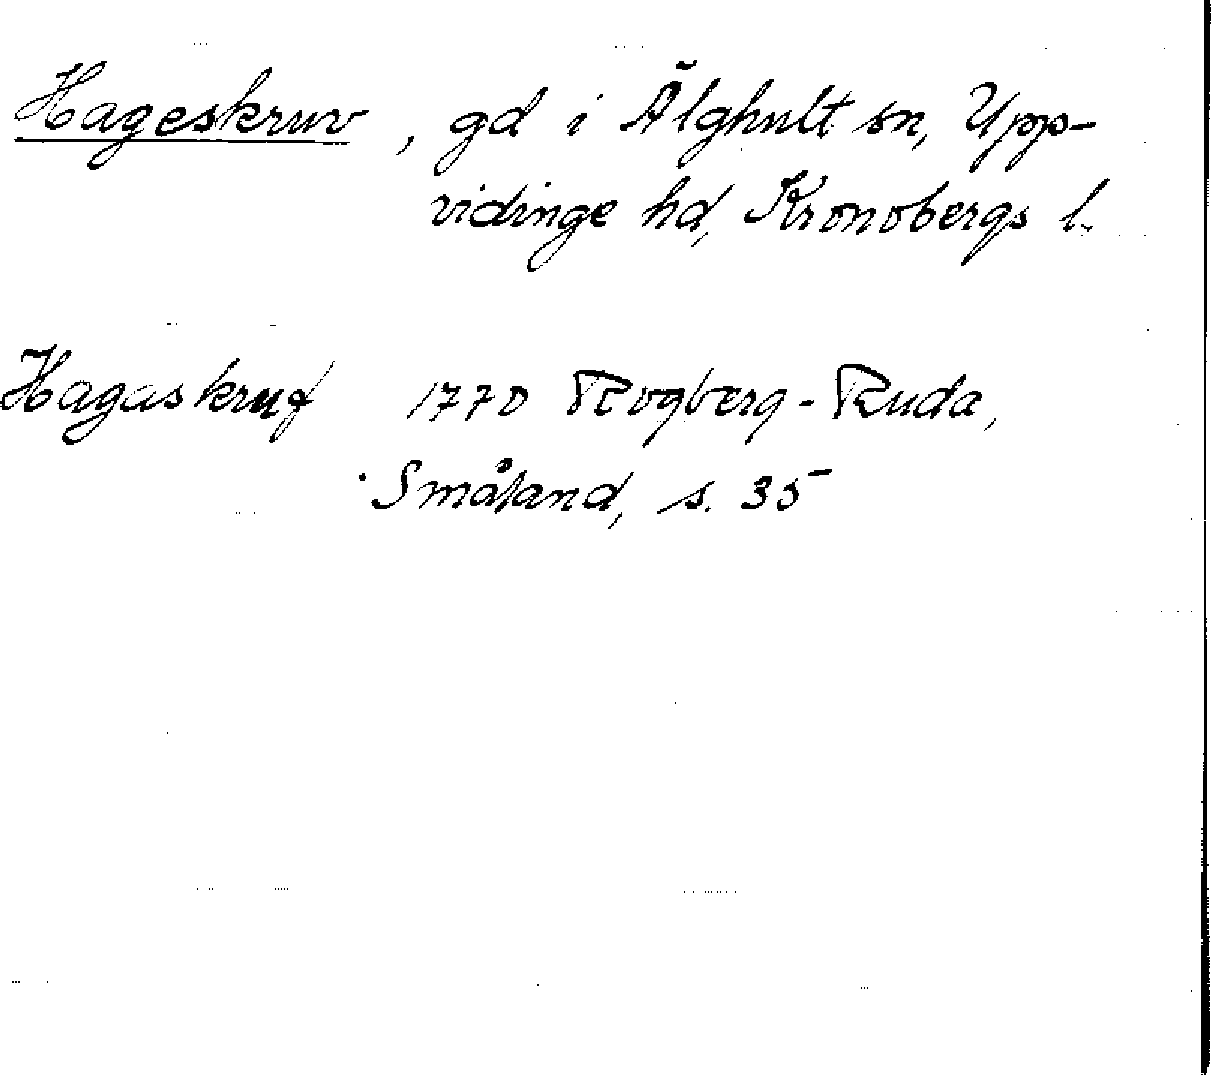 Hageskruv, gd i Älghult sn, Upp-
vidinge hd, Kronobergs l.
Hagaskruf 1770 Rogberg-Ruda,
Småland, s. 35